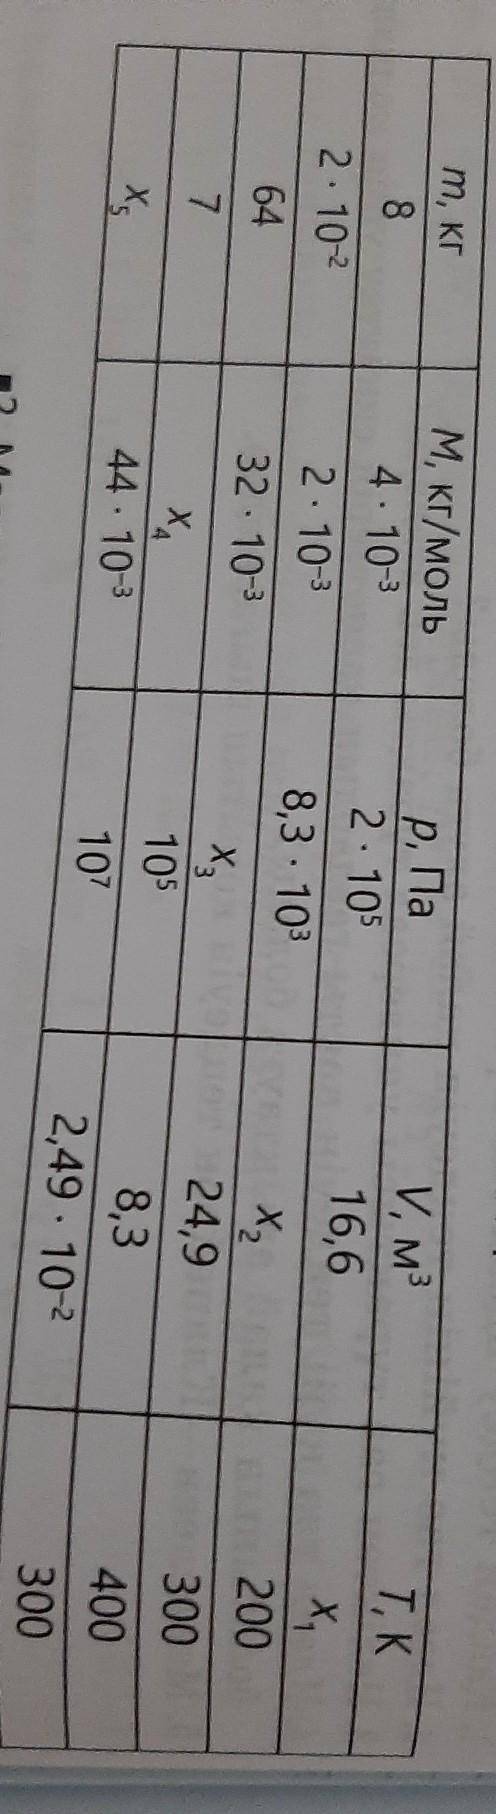 m, кг M, кг/моль p, Па V, м³ T, К
8 4 · 10⁻³ 2 · 10⁵ 16,6 x₁
2 · 10⁻² 2 · 10⁻³ 8,3 · 10³ x₂ 200
64 32 · 10⁻³ x₃ 24,9 300
7 x₄ 10⁵ 8,3 400
x₅ 44 · 10⁻³ 10⁷ 2,49 · 10⁻² 300